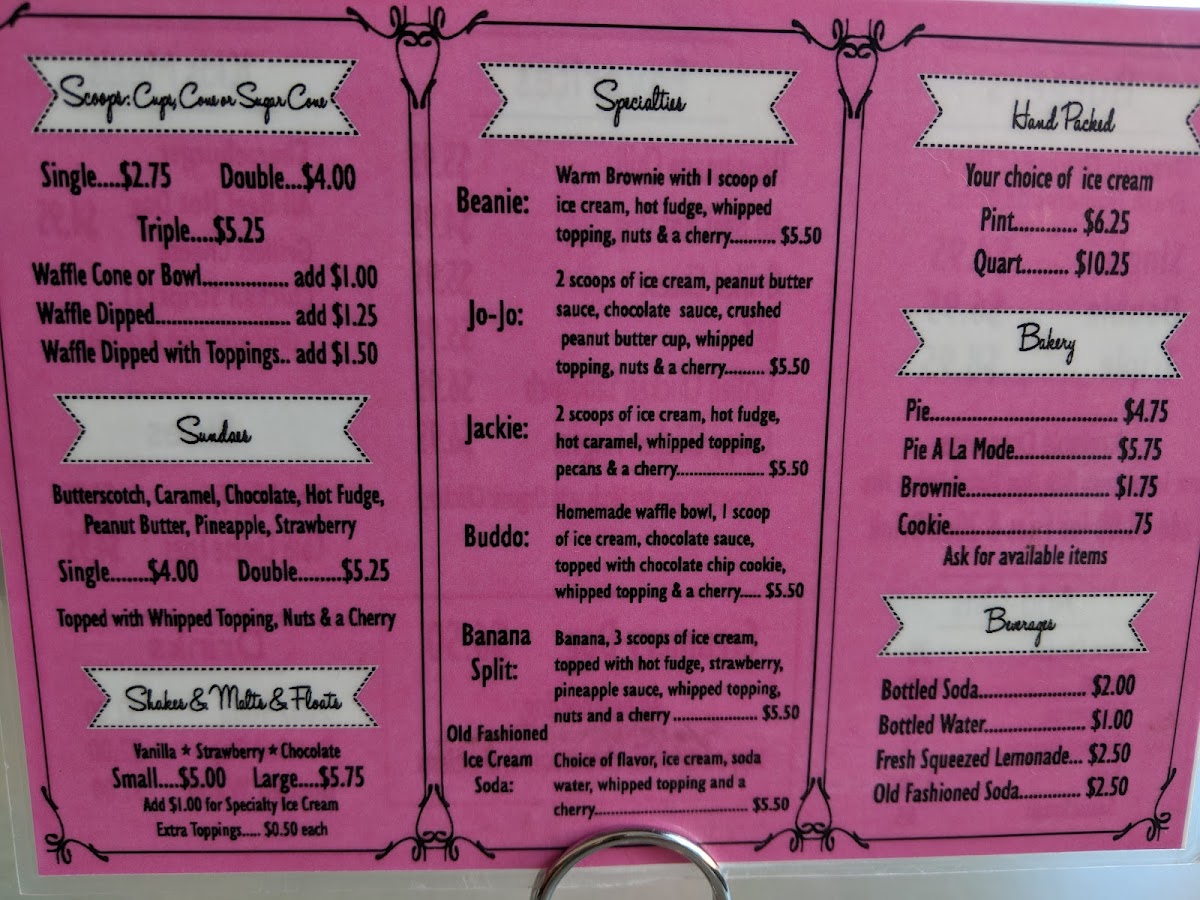 Scoops: Cups, Cone or Sugar Cone
Single....$2.75 Double...$4.00
Triple....$5.25
Waffle Cone or Bowl................ add $1.00
Waffle Dipped......................... add $1.25
Waffle Dipped with Toppings.. add $1.50
Sundaes
Butterscotch, Caramel, Chocolate, Hot Fudge,
Peanut Butter, Pineapple, Strawberry
Single.......$4.00 Double........$5.25
Topped with Whipped Topping, Nuts & a Cherry
Shakes & Malts & Floats
Vanilla ★ Strawberry ★ Chocolate
Small....$5.00 Large....$5.75
Add $1.00 for Specialty Ice Cream
Extra Toppings..... $0.50 each
Specialties
Beanie:
Warm Brownie with 1 scoop of
ice cream, hot fudge, whipped
topping, nuts & a cherry.......... $5.50
Jo-Jo:
2 scoops of ice cream, peanut butter
sauce, chocolate sauce, crushed
peanut butter cup, whipped
topping, nuts & a cherry......... $5.50
Jackie:
2 scoops of ice cream, hot fudge,
hot caramel, whipped topping,
pecans & a cherry................... $5.50
Buddo:
Homemade waffle bowl, 1 scoop
of ice cream, chocolate sauce,
topped with chocolate chip cookie,
whipped topping & a cherry..... $5.50
Banana
Split:
Banana, 3 scoops of ice cream,
topped with hot fudge, strawberry,
pineapple sauce, whipped topping,
nuts and a cherry ................... $5.50
Old Fashioned
Ice Cream
Soda:
Choice of flavor, ice cream, soda
water, whipped topping and a
cherry................................... $5.50
Hand Packed
Your choice of ice cream
Pint............ $6.25
Quart......... $10.25
Bakery
Pie.................................... $4.75
Pie A La Mode................... $5.75
Brownie............................ $1.75
Cookie...................................75
Ask for available items
Beverages
Bottled Soda...................... $2.00
Bottled Water.................... $1.00
Fresh Squeezed Lemonade... $2.50
Old Fashioned Soda............. $2.50